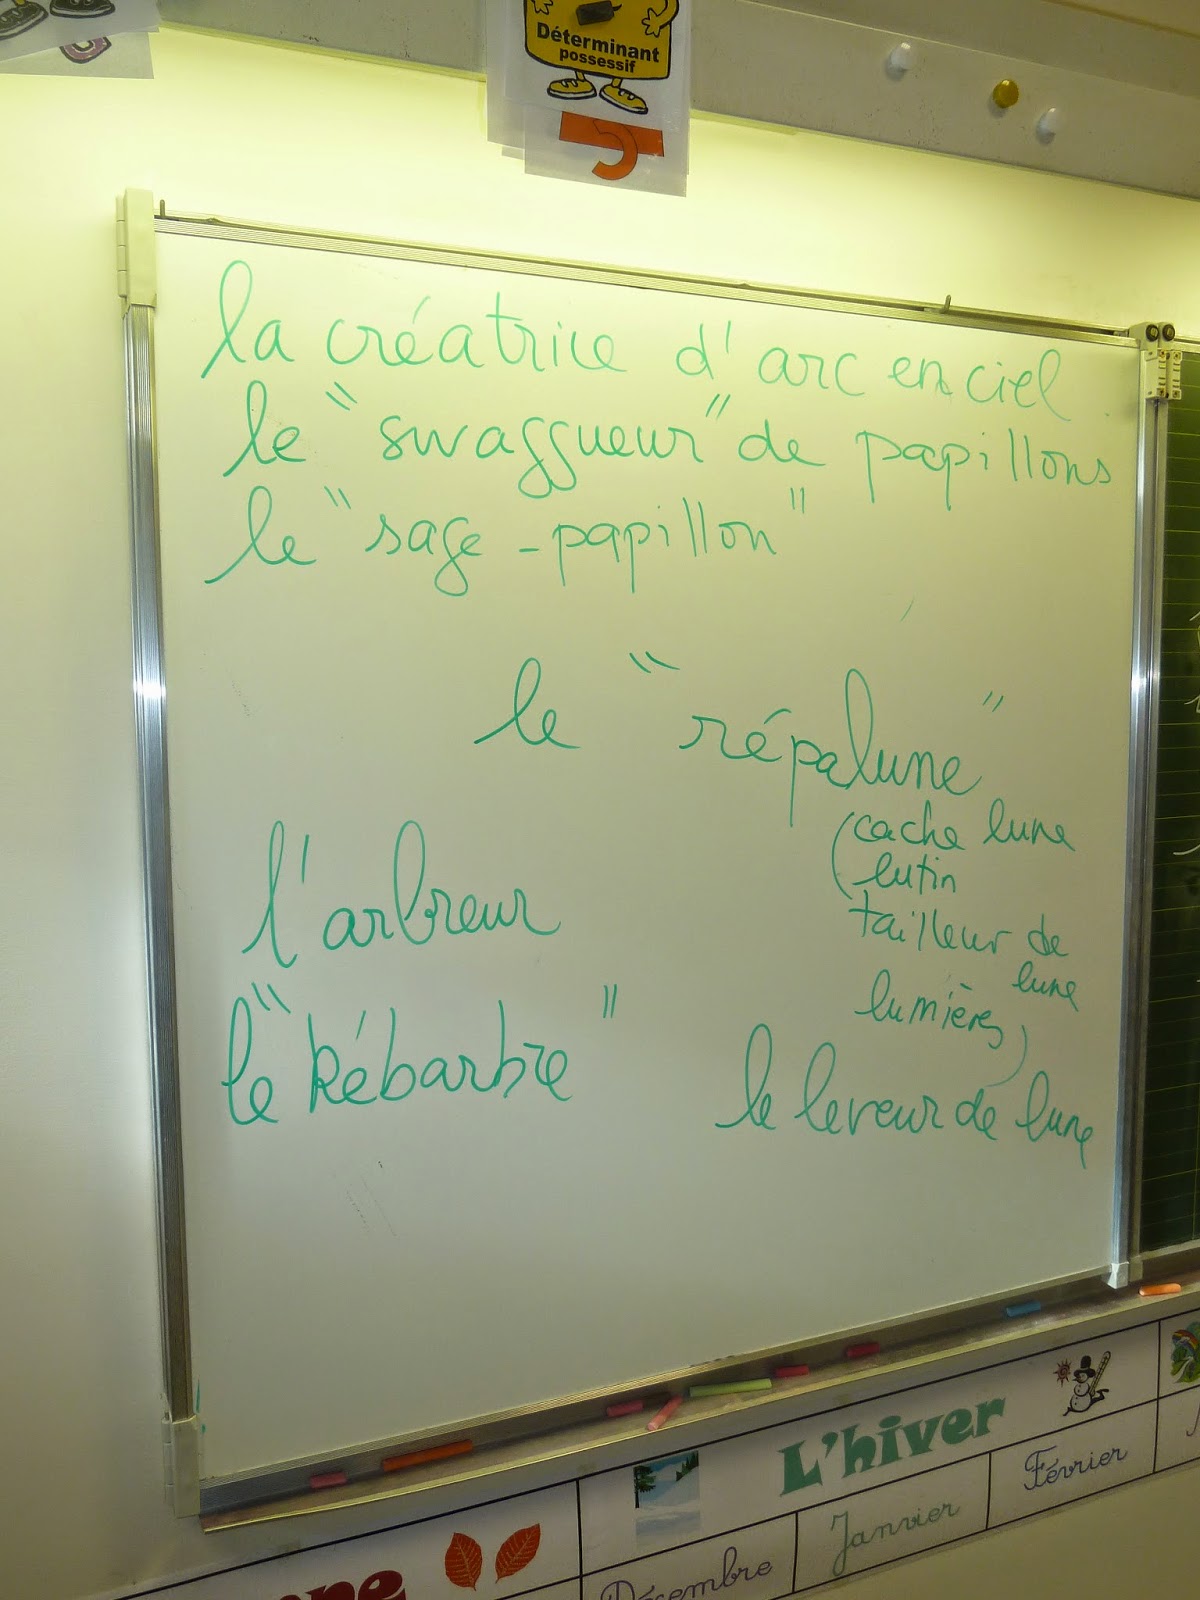 Déterminant
possessif
la créatrice d'arc en ciel
le "swaggueur" de papillons
le "sage-papillon"
le "répalune"
(cache lune
lutin
tailleur de
lune
lumières)
l'arbreur
le "kébarbre"
le leveur de lune
L'hiver
Décembre
Janvier
Février